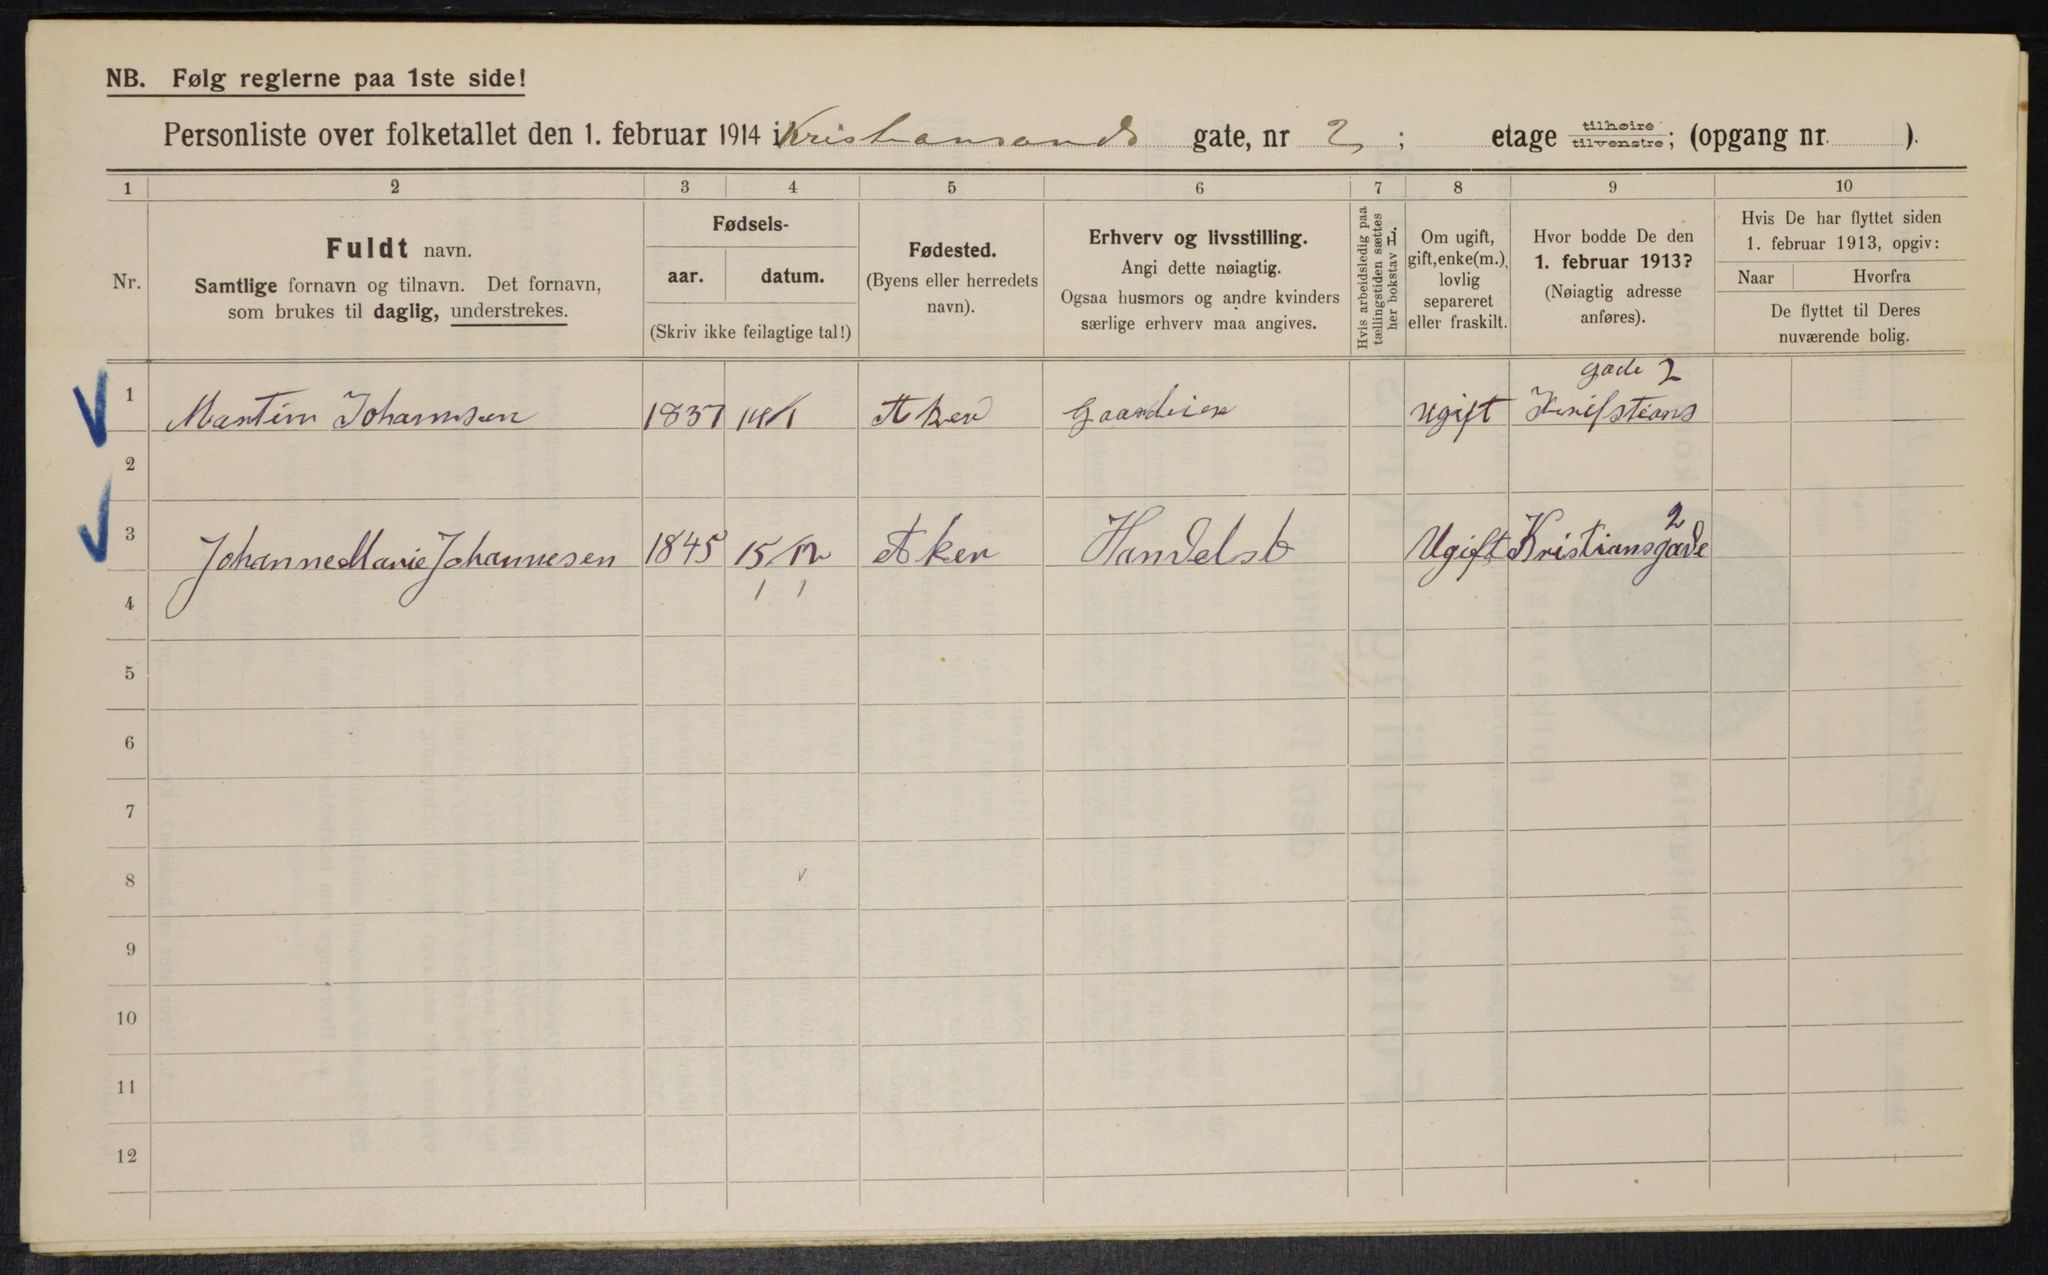 NB. Følg reglerne paa 1ste side!
Personliste over folketallet den 1. februar 1914 i Kristiansands gate, nr 2; etage tilhøire tilvenstre; (opgang nr. ).
1 2 3 4 5 6 7 8 9 10
Nr.
Fuldt navn.
Samtlige fornavn og tilnavn. Det fornavn,
som brukes til daglig, understrekes.
Fødsels-
aar. datum.
(Skriv ikke feilagtige tal!)
Fødested.
(Byens eller herredets
navn).
Erhverv og livsstilling.
Angi dette nøiagtig.
Ogsaa husmors og andre kvinders
særlige erhverv maa angives.
Hvis arbeidsledig paa
tællingstiden sættes
her bokstav L.
Om ugift,
gift, enke(m.),
lovlig
separeret
eller fraskilt.
Hvor bodde De den
1. februar 1913?
(Nøiagtig adresse
anføres).
Hvis De har flyttet siden
1. februar 1913, opgiv:
Naar Hvorfra
De flyttet til Deres
nuværende bolig.
gade 2
1 Martin Johannsen 1837 Aker Gaardeier ugift Kristians
2
2
3 Johanne Marie Johannesen 1845 15/12 Aker Handelsb Ugift Kristiansgade
4
5
6
7
8
9
10
11
12